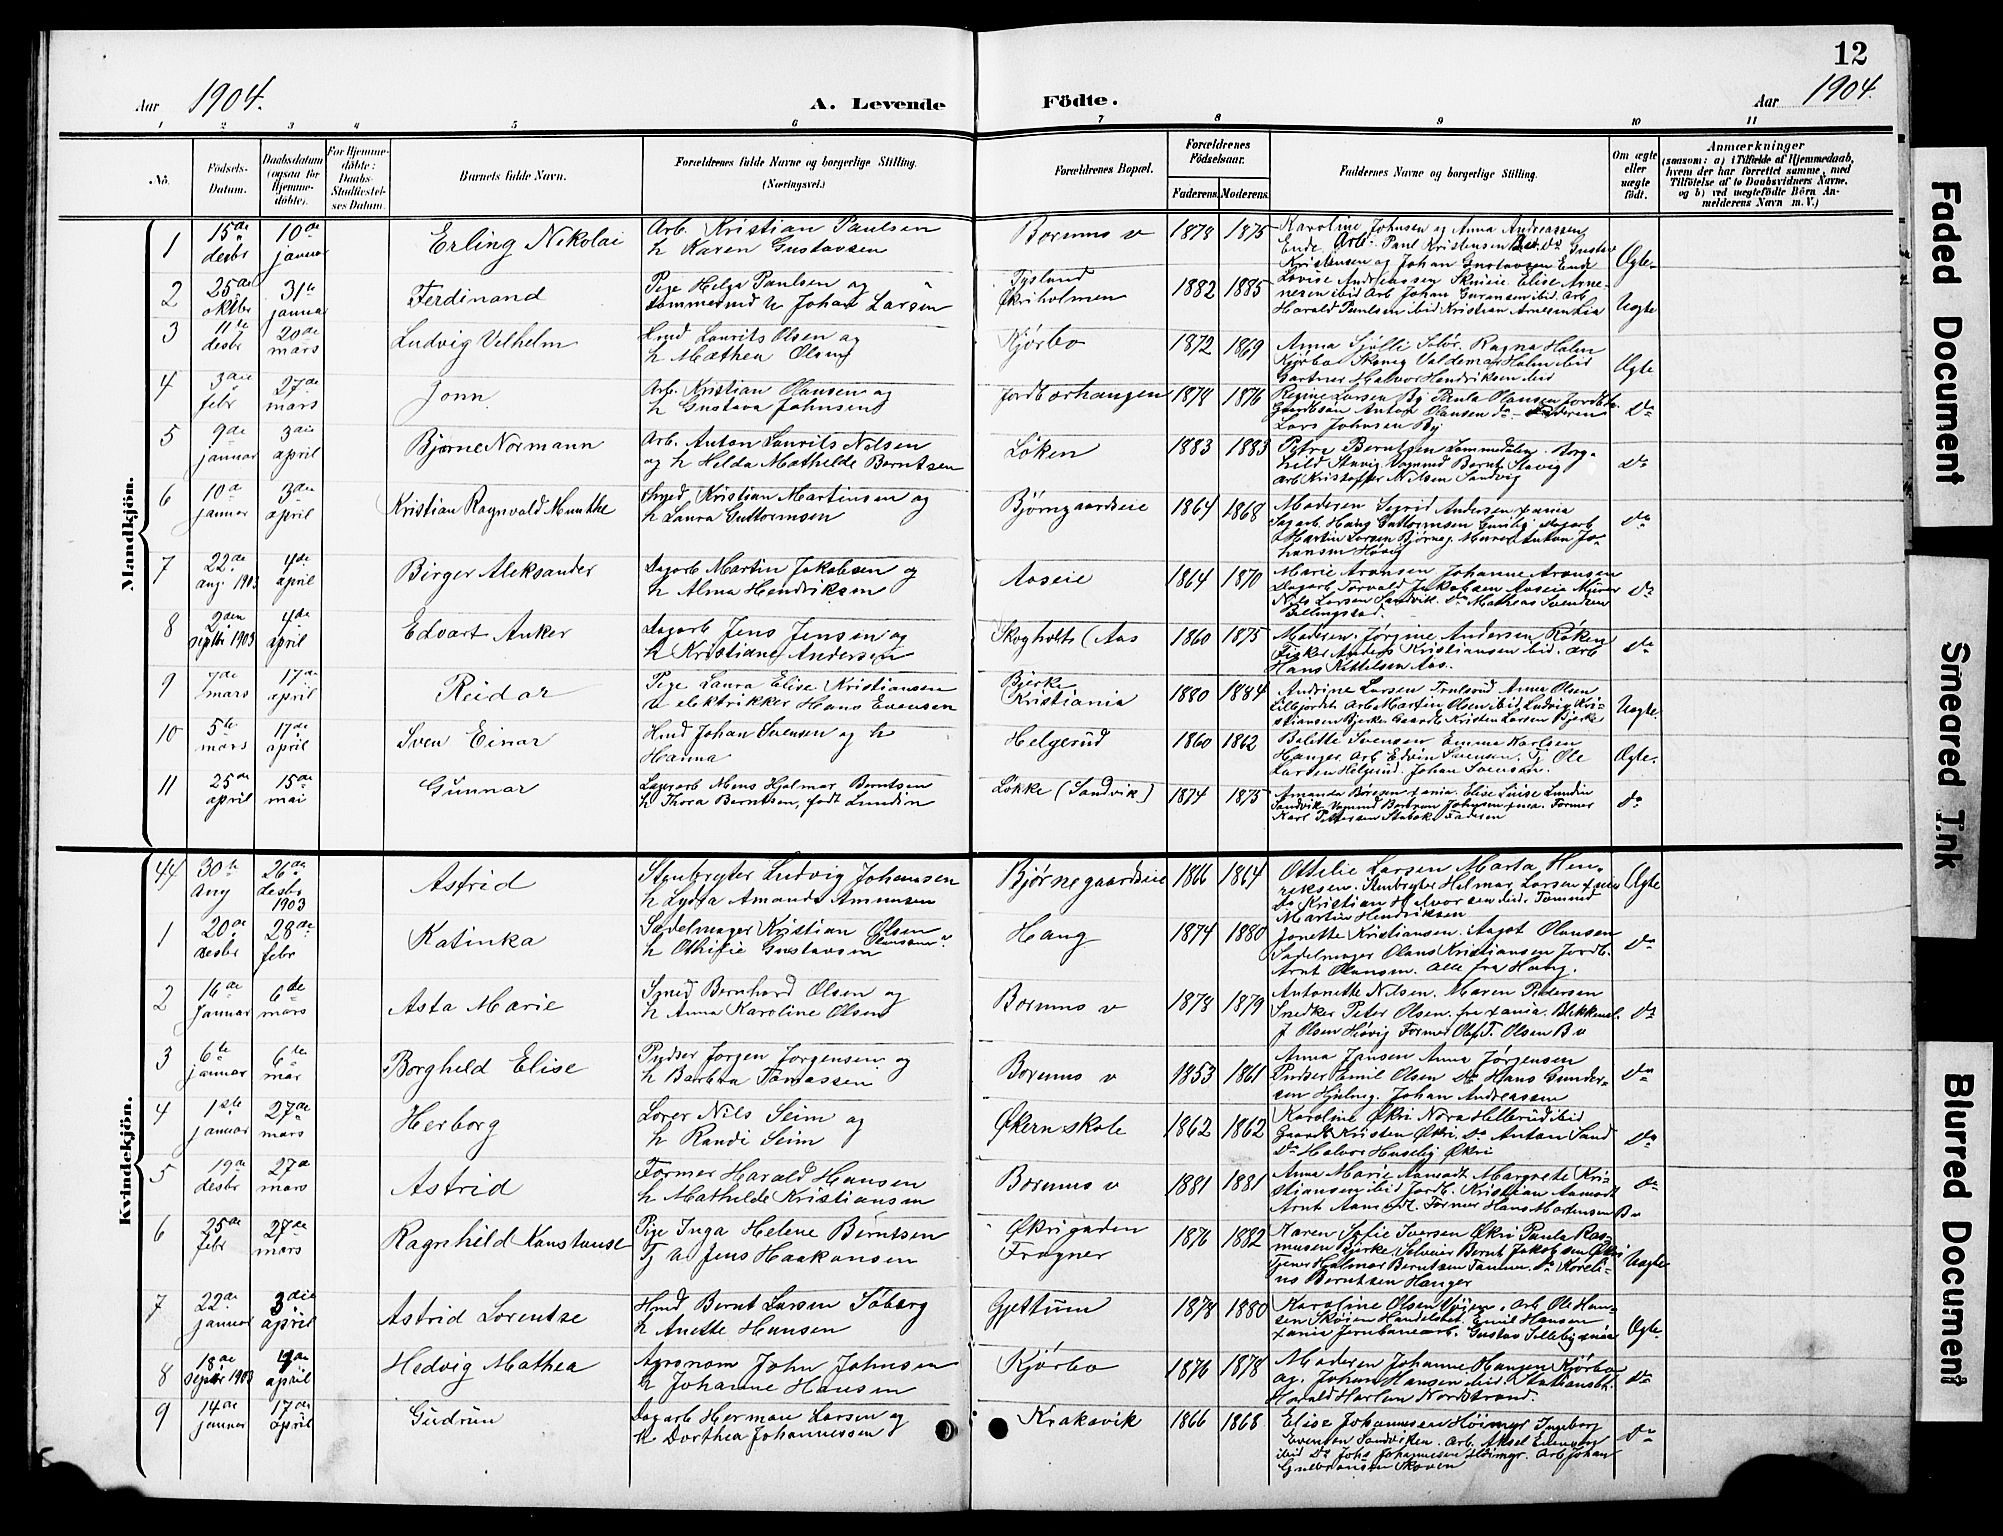 12
Aar 1904.
A. Levende Födte.
Aar 1904.
1 2 3 4 5 6 7 8 9 10 11
No.
Födsels-Datum.
Daabsdatum (ogsaa for Hjemmedöbte).
For Hjemmedöbte: Daabs-Stadfæstelses Datum.
Barnets fulde Navn.
Forældrenes fulde Navne og borgerlige Stilling. (Næringsvei.)
Forældrenes Bopæl.
Forældrenes Födselsaar.
Faderens. Moderens.
Faddernes Navne og borgerlige Stilling.
Om ægte eller uægte født.
Anmærkninger
(saasom: a) i Tilfælde af Hjemmedaab, hvem der har forrettet samme, med Tilföielse af to Daabsvidners Navne, og b) ved uægtefödte Börn Anmelderens Navn m. V.)
Mandkjön.
1 15de desbr 10de januar Erling Nikolai Arb. Kristian Paulsen h Karen Gustavsen Borums v 1878 1875 Karoline Johnsen og Anna Andreassen Ende Arb. Paul Kristensen Do Gustav Kristensen og Johan Gustavsen Ende Ægte
2 25de oktbr 31te januar Ferdinand Pige Helga Paulsen og Johan Larsen Tysland Økriholmen 1882 1885 Lovise Andreassen Elise Arnesen ibid Arb Johan ibid Arb Harald Paulsen ibid Kristian Arnesen Lia Uægte
3 11te desbr 20de mars Ludvig Vilhelm Hmd Laurits Olsen og h Mathea Olsen Kjørbo 1872 1869 Anna Ragna Holm Kjørbo Valdemar Holm ibid Gartner Halvor Hendriksen ibid Ægte
4 3die febr 27de mars Jonn Arb. Kristian Olausen og h Gustava Johnsen Jordbærhaugen 1878 1876 Regine Larsen By Paula Olausen Anton Olausen do Faderen Lars Johnsen By Do
5 9de januar 3die april Bjarne Normann Arb. Anton Laurits Nilsen og h Helda Mathilde Berntsen Løken 1883 1883 Petra Berntsen Sommedalen Borghild Stavig Bernt Stavig Arb Kristoffer Nilsen Sandvig Do
6 10de januar 3die april Kristian Ragnvald Munthe Smed Kristian Martinsen og h Laura Guttormsen Bjørngaardseie 1864 1868 Moderen Sigrid Andersen xania Hans Guttormsen Martin Larsen Bjørneg. Murer Anton Johansen Høvig Do
7 22de aug 1903 4de april Birger Aleksander Dagarb Martin Jakobsen og h Alma Hendriksen Aaseie 1864 1870 Marie Aronsen Johanne Aronsen Dagarb Torvald Jakobsen Aaseie Murer Nils Larsen Sandvik Do Mathias Svendsen Billingstad Do
8 2den septbr 1903 4de april Edvart Anker Dagarb Jens Jensen og h Kristiane Andersen Skogholt (Aas 1860 1875 Moderen Jørgine Andersen Røken Fisker Anders Kristiansen ibid. Arb Hans Kittelsen Aas. Do
9 7de mars 17de april Reidar Pige Laura Elise Kristiansen u elektrikker Hans Evensen Bjerke Kristiania 1880 1884 Andrine Larsen Trulsrud Anna Olsen Arb Martin Olsen ibid Ludvig Kristiansen Bjerke Kristen Larsen Bjerke Uægte
10 5te mars 17de april Sven Einar Hmd Johan Svensen og h Hanna Helgerud 1860 1862 Bolette Svensen Emma Karlsen Hanger Arb Edvin Svensen Tj Ole Larsen Helgerud. Johan Svensen. Ægte
11 25de april 15de mai Gunnar Lagerarb Mons Hjalmar Berntsen h. Thora Berntsen, født Lundin Løkke (Sandvik) 1874 1875 Amanda Børesen xania Elise Luise Lundin Sandvik Bertram Johnsen xnia Former Karl Pettersen Stabæk Faderen Do
Kvindekjön.
44 30te aug 26de desbr 1903 Astrid Stenbryter Ludvig Johansen h Lydia Amanda Amunsen Bjørnegaardseie 1866 1864 Ottilie Larsen Marta Henriksen. Stenbryter Helmar Larsen xnia Do Kristian Halvorsen ibid. Martin Hendriksen Ægte
1 20de desbr 28de febr Katinka Sadelmager Kristian Olsen h Othilie Gustavsen Haug 1874 1880 Jonette Kristiansen. Aagot Olausen Sadelmager Olaus Kristiansen Arnt Olausen. Alle fra Haug. Do
2 16de januar 6de mars Asta Marie Smed Bernhard Olsen og h Anna Karoline Olsen Borums v 1878 1879 Antonette Nilsen. Maren Pedersen Snedker Peter Olsen. fra xania. Blikkensl. J Olsen Høvig Former Olaf T. Olsen B v Do
3 6te januar 6te mar Borghild Elise Pudser Jørgen Jørgensen og h Barbra Tomassen Borums v 1853 1861 Anna Jansen Anna Jørgensen Pudser Emil Olsen Do Hans Gundersen Johan Andreassen Do
4 1ste januar 27de mars Herborg Lærer Nils Seim og h Randi Seim Økern skole 1862 1862 Karoline Økri Nora Hellerud ibid Kristen Økri. Do Anton Sand Do Halvor Huseby Økri Do
5 19de desbr 27de mars Astrid Former Harald Hansen h Mathilde Kristiansen Borums v 1881 1881 Anna Marie Aamodt Margrete Kristiansen ibid Kristian Aamodt Arnt Aamodt. Former Hans Mortensen B v Do
6 25de febr 27de mars Ragnhild Konstanse Pige Inga Helene Berntsen Tj Jens Haakonsen Økrigaden Frogner 1876 1882 Karen Sofie Iversen Økri Paula Rasmusen Bjerke, Bernt Jakobsen Økri Tjener Halmar Berntsen do Berntsen Hanger Uægte
7 22de januar 3die april Astrid Lorentse Hmd Bernt Larsen Toberg h Anette Hansen Gjettum 1878 1880 Karoline Olsen Arb Ole Hansen Emil Hansen xania Jernbanearb. Gustav xnia Ægte
8 18de septbr 1903 4de april Hedvig Mathea Agronom John Johnsen h Johanne Hansen Kjørbo 1876 1878 Moderen Johanne Hansen Kjørbo ag. Johan Hansen ibid. Harald Nordstrand. Do
9 14de januar 17de april Gudrun Dagarb Herman Larsen og h Dorthea Johannessen Krokavik 1866 1868 Elise Johannesen Høimyr Ingeborg Evensen Sandviken. Arb. Aksel Evensen ibid Do Johs Johannesen Høimyr. Arb Johan Gulbransen Skoven Do
Faded Document
Smeared Ink
Blurred Document